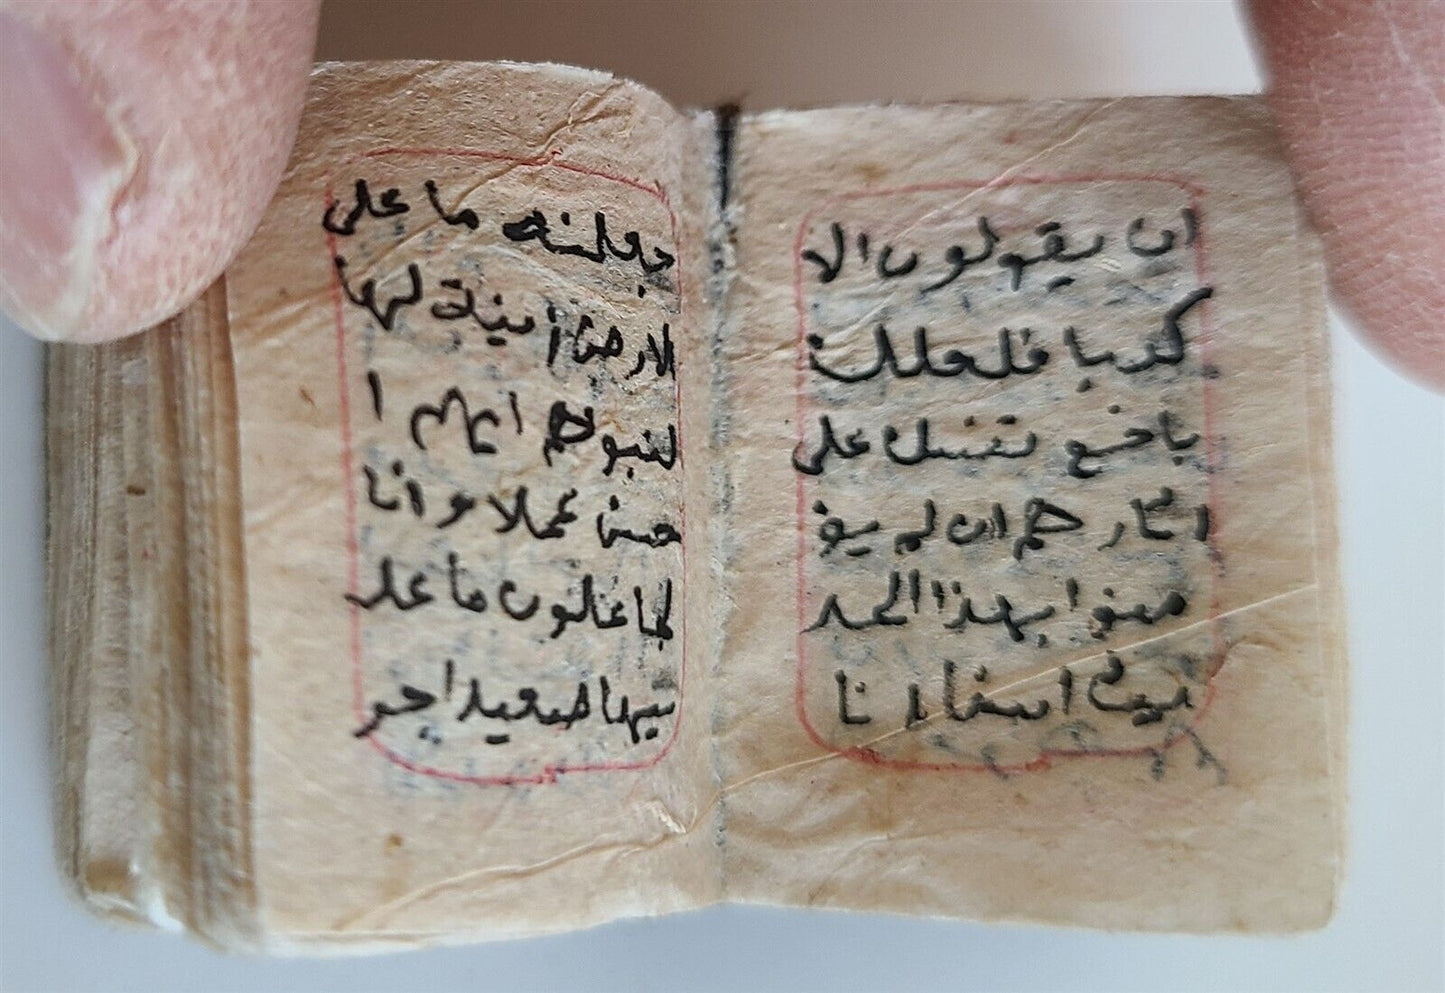 ان يقولون الا
كذبا فلعلك
باخع نفسك على
اثارهم ان لم يؤ
منوا بهذا الحد
يث اسفا انا
جعلنه ما على
الارض زينة لها
لنبوهم ايهم ا
حسن عملا وانا
لجاعلون ما عل
يها صعيدا جر